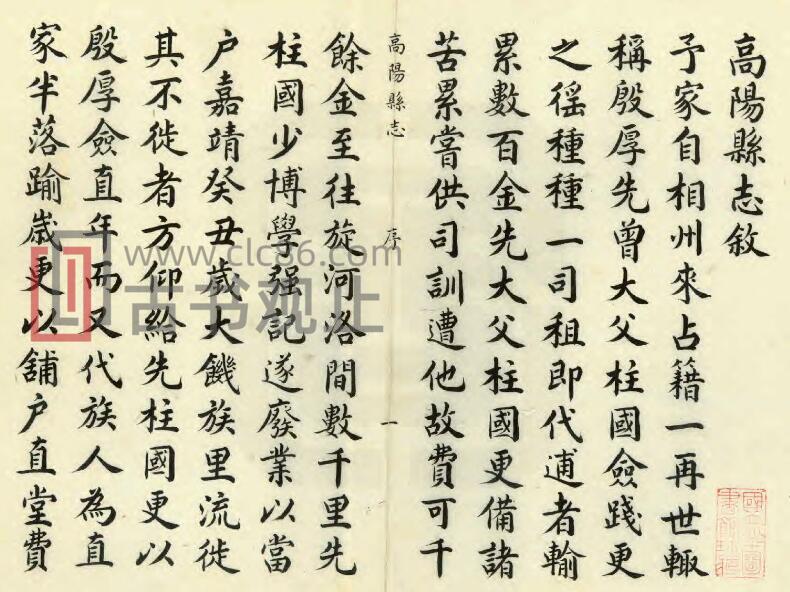 高陽縣志敘
予家自相州來占籍一再世輙
稱殷厚先曾大父柱國儉踐更
之徭種種一司租即代逋者輸
累數百金先大父柱國更備諸
苦累嘗供司訓遭他故費可千
高陽縣志 序 一
餘金至往旋河洛間數千里先
柱國少博學强記遂廢業以當
户嘉靖癸丑歲大饑族里流徙
其不徙者方仰給先柱國更以
殷厚僉直年而又代族人為直
家半落踰歲更以舖户直堂費
www.clc86.com
古书观止